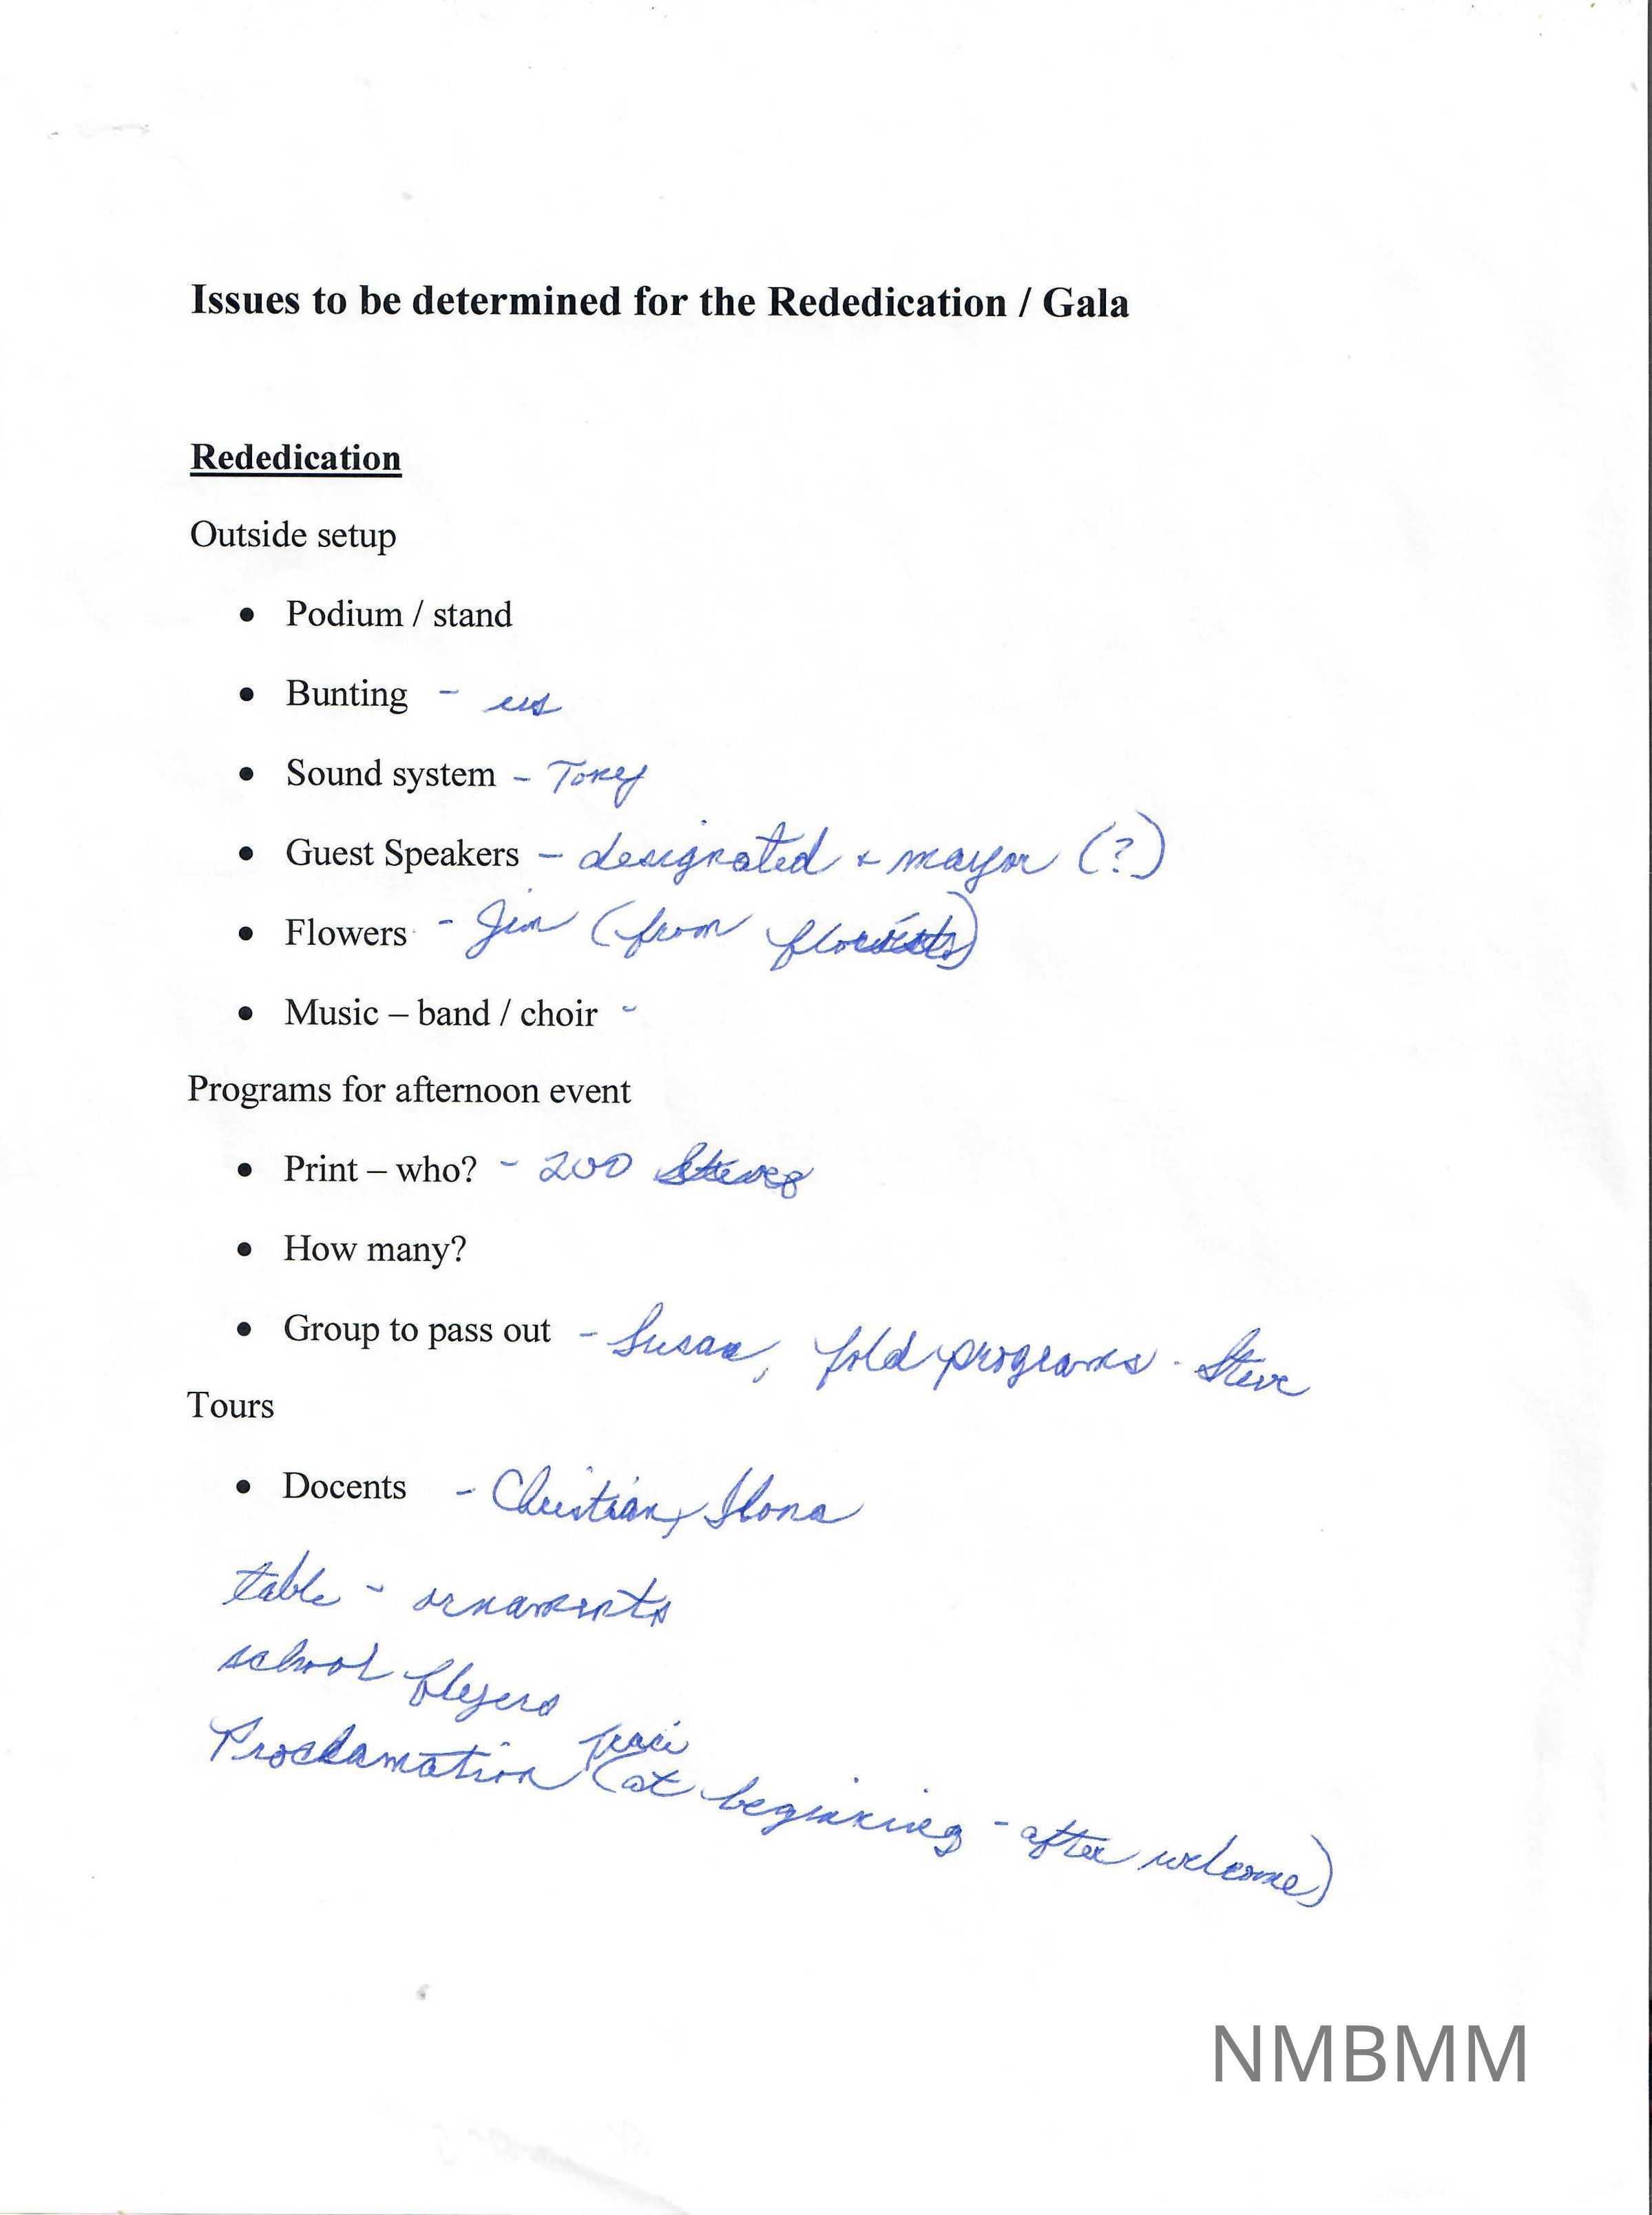 Issues to be determined for the Rededication / Gala
Rededication
Outside setup
• Podium / stand
• Bunting - us
• Sound system - Tony
• Guest Speakers - designated + mayor (?)
• Flowers - Jim (from florists)
• Music – band / choir -
Programs for afternoon event
• Print – who? - 200 Steve
• How many?
• Group to pass out - Susan, fold programs - Steve
Tours
• Docents - Christian, Ilona
table - ornaments
school flyers
Traci
Proclamation (at beginning - after welcome)
NMBMM